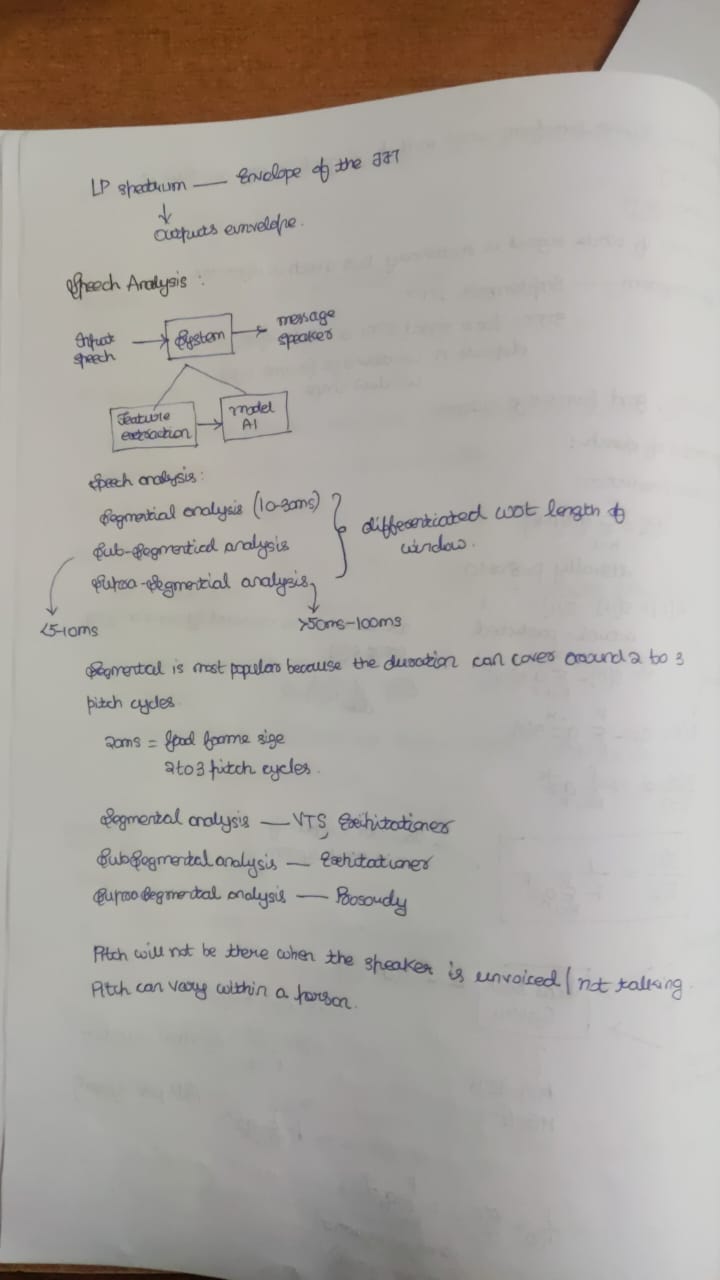 LP spectrum — Envelope of the FFT
↓
outputs eunvelope.
Speech Analysis :
Input speech → System → message speaker
Feature extraction → model AI
Speech analysis:
Segmential analysis (10-30ms)
Sub-Segmentied analysis
Supra-Segmential analysis
differentiated wrt length of window.
<5-10ms
>50ms-100ms
Segmental is most popular because the duration can cover around 2 to 3
pitch cycles.
20ms = good frame size
2 to 3 pitch cycles.
Segmental analysis — VTS,
Sub Segmental analysis —
Supra Segmental analysis — Prosoudy
Pitch will not be there when the speaker is unvoiced / not talking.
Pitch can vary within a person.